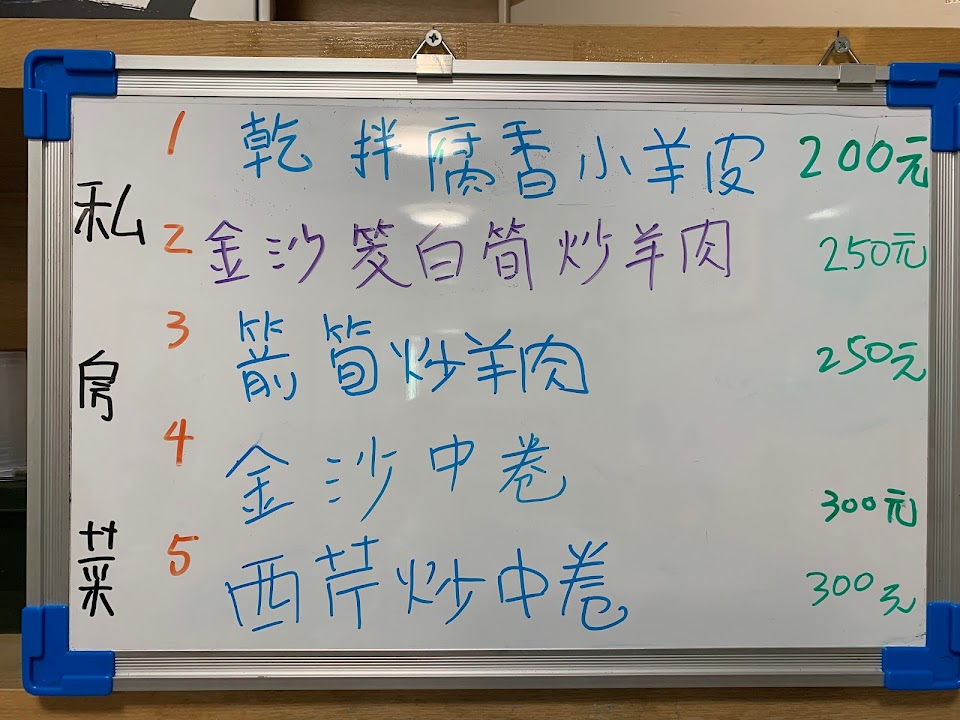 私房菜
1 乾拌腐香小羊皮 200元
2 金沙筊白筍炒羊肉 250元
3 箭筍炒羊肉 250元
4 金沙中卷 300元
5 西芹炒中卷 300元